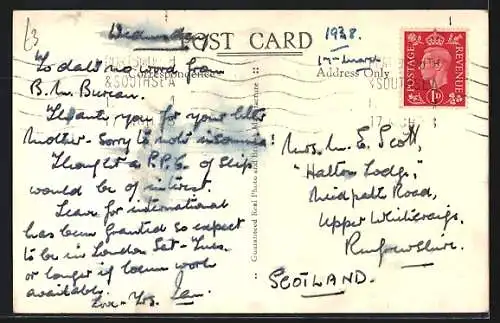 £3
Wednesday
POST CARD
1938.
17 - March
Correspondence
Address Only
PORTSMOUTH
& SOUTHSEA
& SOUTHSEA
POSTAGE
REVENUE
1D
To date no word from
B. M. Bureau.
Thank you for your letter
Mother - Sorry to note insomnia!
Thought a P.P.C. of ship
would be of interest.
Leave for international
has been granted so expect
to be in London Sat - Tues.
or longer if been work
available.
Love - Yrs. Ian.
Guaranteed Real Photo and Manufacture
Mrs. M. E. Scott,
"Halton Lodge,"
Road,
Upper Whitecraigs,
Renfrewshire.
SCOTLAND.